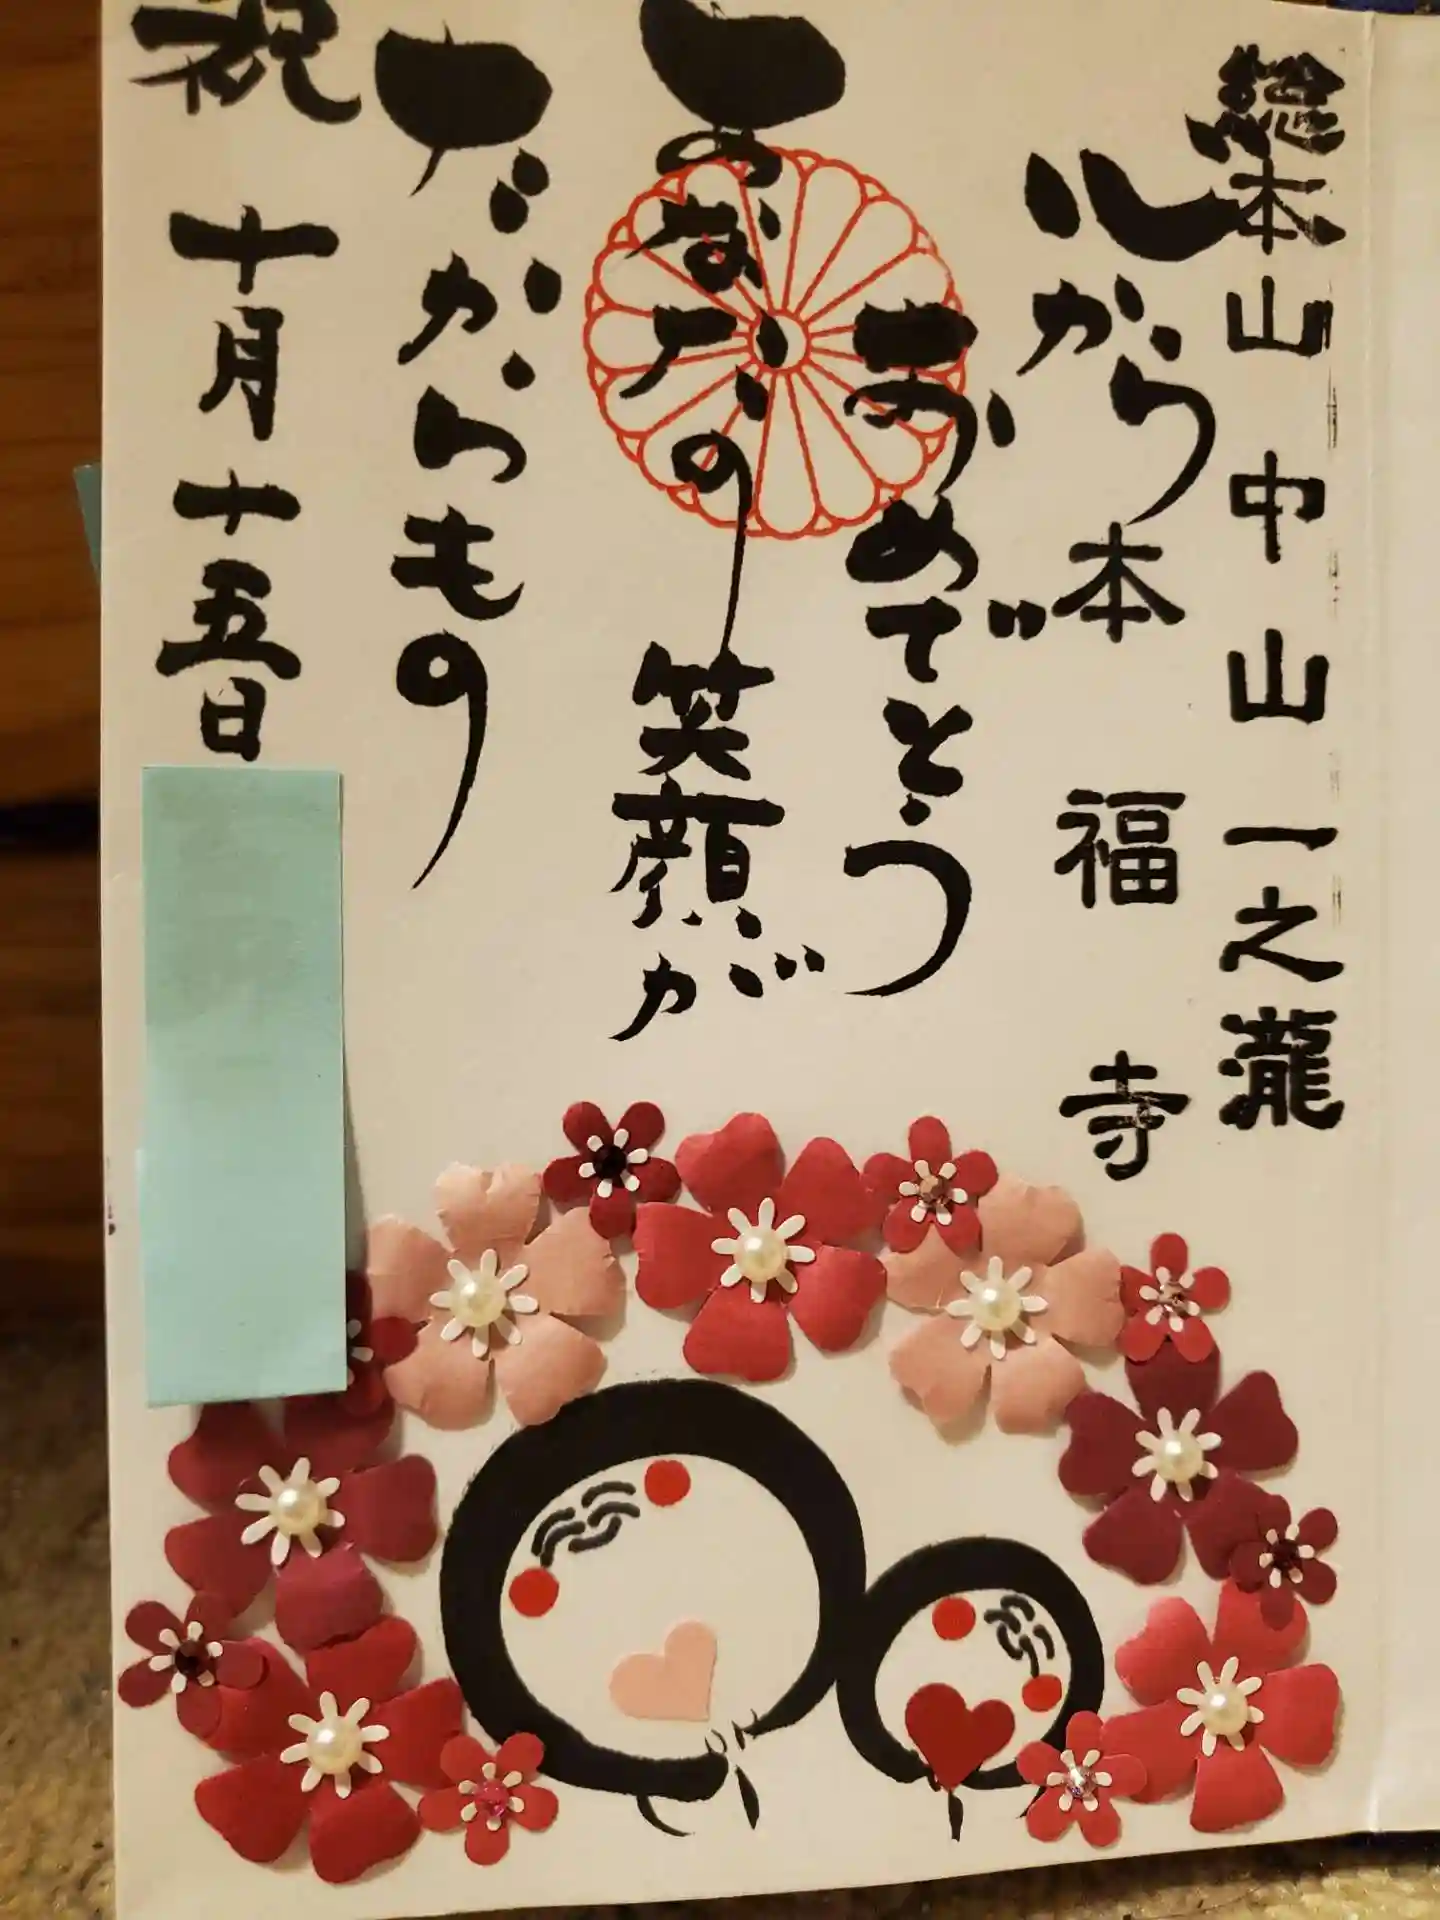 総本山 中山 一之瀧
本福寺
心から
おめでとう
あなたの笑顔が
たからもの
祝 十月十五日